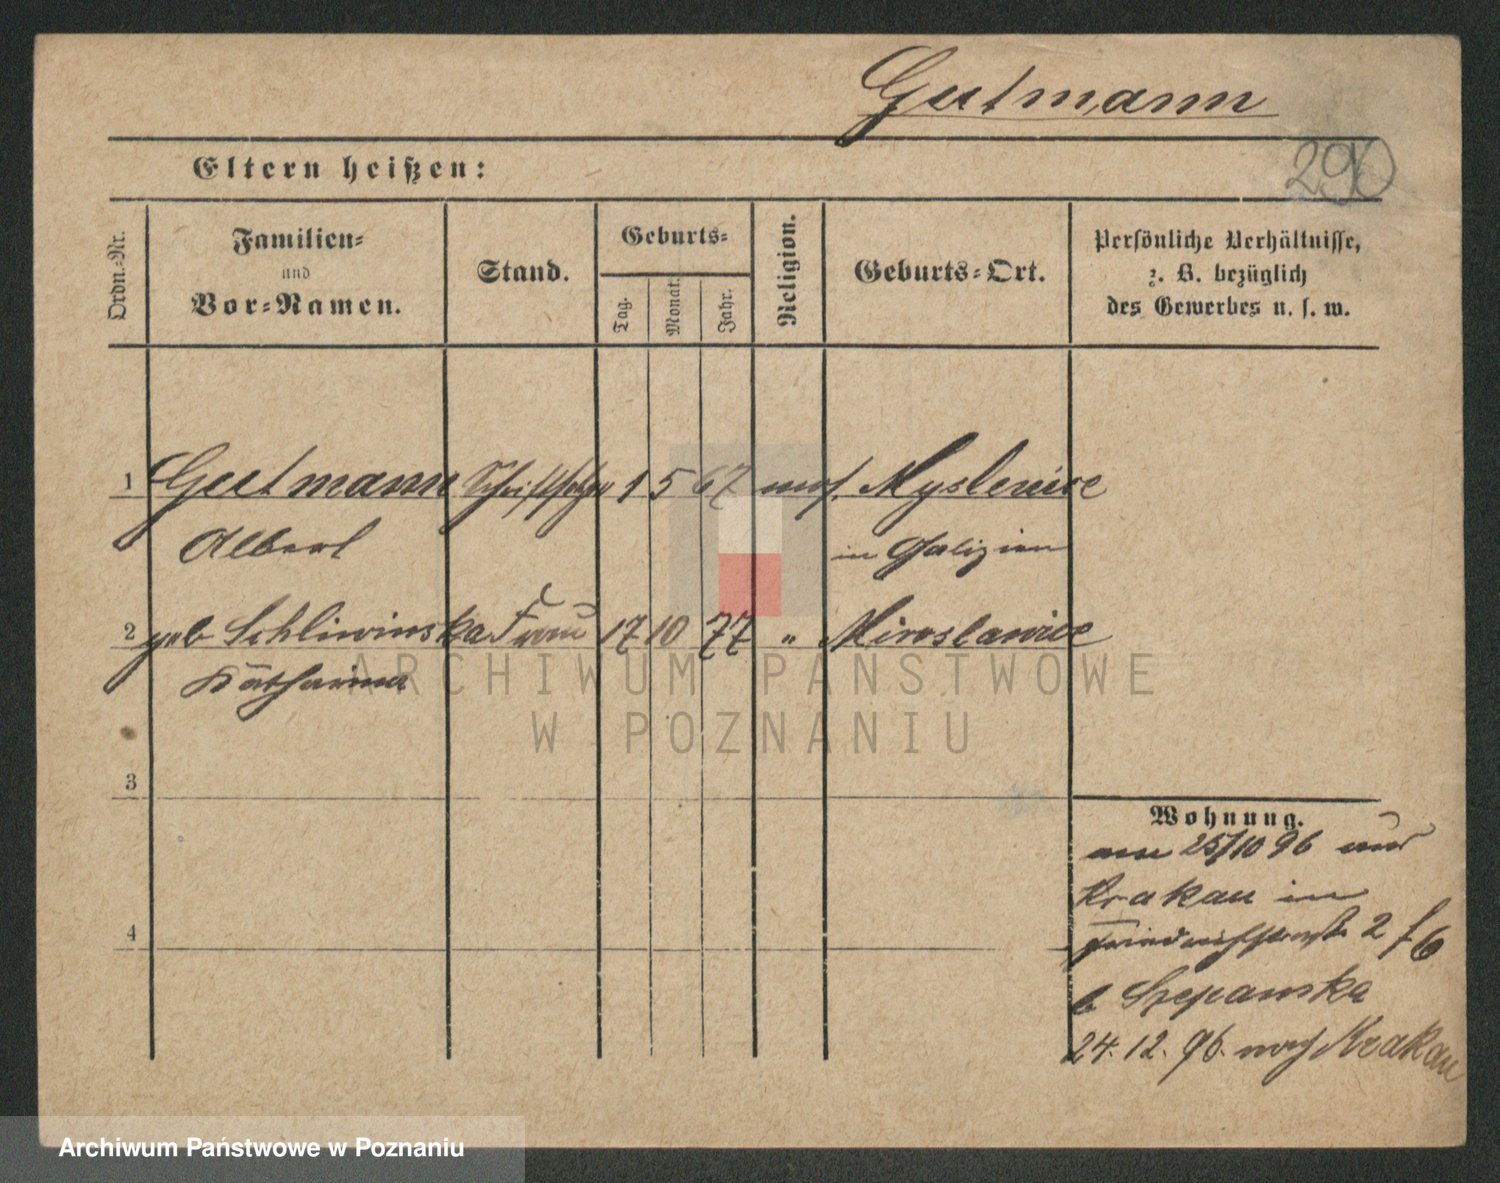 Gutmann
290
Eltern heißen:
Ordn.-Nr.
Familien-
und
Vor-Namen.
Stand.
Geburts-
Tag.
Monat.
Jahr.
Religion.
Geburts-Ort.
Persönliche Verhältnisse,
z. B. bezüglich
des Gewerbes u. s. w.
1 Gutmann Schriftsetzer 1 5 67 mos. Myslenice
Albert in Galizien
2 geb Schliwinska Frau 17 10 77 " Miroslawice
Katharina
3
4
Wohnung.
am 25/10 96 aus
Krakau in
Friedrichstraße 2
b Szepanska
24. 12. 96. nach Krakau
ARCHIWUM PAŃSTWOWE
W POZNANIU
Archiwum Państwowe w Poznaniu